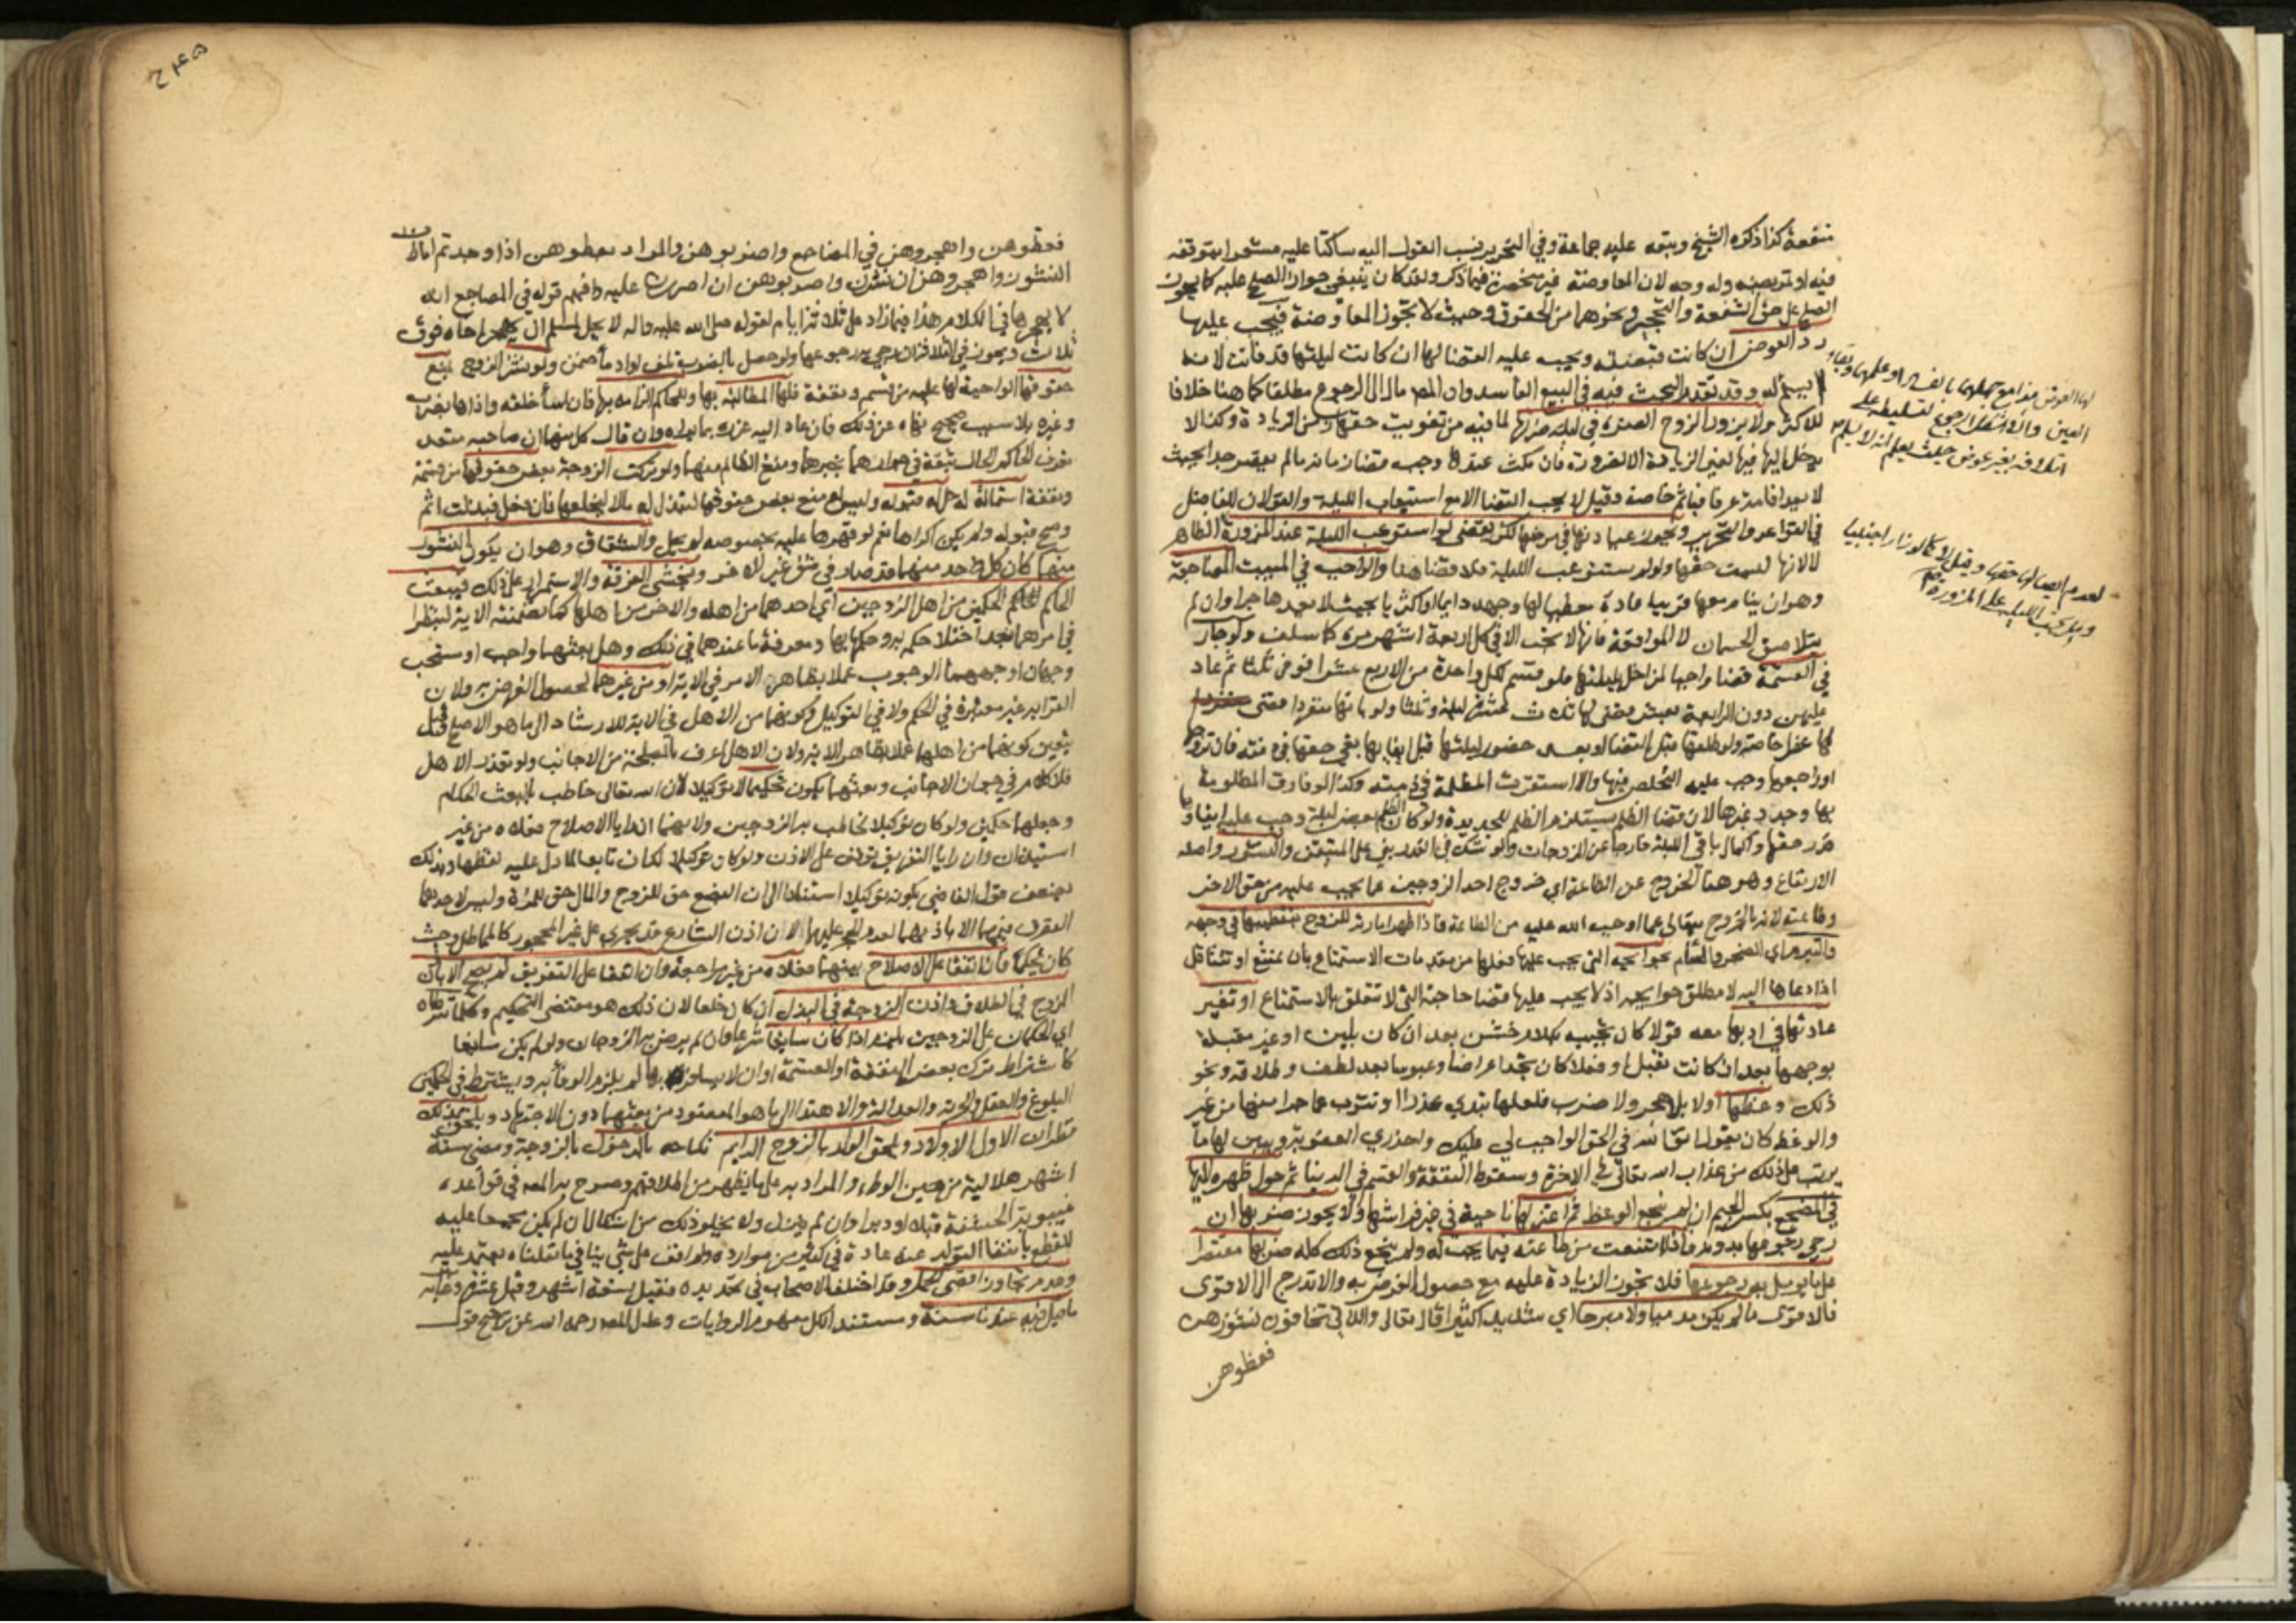 منفعة كذا ذكره الشيخ وتبعه عليه جماعة وفي التحرير نسب القول اليه ساكتا عليه مشعرا بتوقفه
فيه او تمريضه وله وجه لان المعاوضة غير منحصرة فيما ذكر ولقد كان ينبغي جواز الصلح عليه كما يجوز
الصلح على حق الشفعة والتحجير ونحوهما من الحقوق وحيث لا تجوز المعاوضة فيجب عليها
رد العوض ان كانت قبضته ويجب عليه القضا لها ان كانت ليلتها قد فاتت لانه
لم يسلم له وقد تقدم البحث فيه في البيع الفاسد وان المص مال الى الرجوع مطلقا كما هنا خلافا
للاكثر ولا يزور الزوج الضرة في ليلة ضرتها لما فيه من تفويت حقها زمن الزيارة وكذا لا
يدخل اليها فيها لغير الزيارة الا لضرورة فان مكث عندها وجب قضا زمانه ما لم يقصر جدا بحيث
لا يعد اقامة عرفا فياثم خاصة وقيل لا يجب القضا الا مع استيعاب الليلة والقولان للفاضل
في القواعد والتحرير وتجوز عيادتها في مرضها لكن يقضي لو استوعب الليلة عند المزورة الظاهر
لا لانها ليست حقها ولو لم يستوعب الليلة فلا قضا هنا والواجب في المبيت المضاجعة
وهو ان ينام معها قريبا عادة معطيا لها وجهه دايما او اكثريا بحيث لا يعد هاجرا وان لم
يتلاصق الجسمان لا المواقعة فانها لا تجب الا في كل اربعة اشهر مرة كما سلف ولو جار
في القسمة قضا واجبا لمن اخل بليلتها فلو قسم لكل واحدة من الاربع عشرا فوفى ثلثا ثم عاد
عليهن دون الرابعة بعشر قضى لها ثلاث عشرة ليلة وثلثا ولو باتها منفردا قضى
لها عشرا خاصة ولو طلقها قبل القضا او بعد حضور ليلتها قبل ايفايها بقي حقها في ذمته فان تزوجها
او راجعها وجب عليه التخلص منها والا استقرت المظلمة في ذمته وكذا لو فارق المظلومة
بها وجدد غيرها لان قضا الظلم يستلزم الظلم للجديدة ولو كان الظلم ببعض ليلة وجب عليه ايفاؤها
قدر حقها واكمال باقي الليلة خارجا عن الزوجات ولو شك في القدر بنى على المتيقن والنشوز واصله
الارتفاع وهو هنا الخروج عن الطاعة اي خروج احد الزوجين عما يجب عليه من حق الاخر
وطاعته لانه بالخروج يتعالى عما اوجب الله عليه من الطاعة فاذا ظهر امارته للزوج بتقطيبها في وجهه
والتبرم اي الضجر والسأم بحوايجه التي يجب عليها فعلها من مقدمات الاستمتاع بان تمتنع او تتثاقل
اذا دعاها اليه لا مطلق حوايجه اذ لا يجب عليها قضا حاجته التي لا تتعلق بالاستمتاع او تغير
عادتها في ادبها معه قولا كان تجيبه بكلام خشن بعد ان كان بلين او غير مقبلة
بوجهها بعد ان كانت تقبل او فعلا كان تجد اعراضا وعبوسا بعد لطف وطلاقة ونحو
ذلك وعظها اولا بلا هجر ولا ضرب فلعلها تبدي عذرا او تتوب عما جرا منها من غير
والوعظ كان يقول اتق الله في الحق الواجب لي عليك واحذري العقوبة ويبين لها ما
يترتب على ذلك من عذاب الله تعالى في الاخرة وسقوط النفقة والقسم في الدنيا ثم حول ظهره اليها
في المضجع بكسر الجيم ان لم ينجع الوعظ ثم اعتزلها ناحية في غير فراشها ولا يجوز ضربها ان
رجى رجوعها بدونه فاذا امتنعت من طاعته فيما يجب له ولم ينجع ذلك كله ضربها مقتصرا
على ما يؤمل به رجوعها فلا تجوز الزيادة عليه مع حصول الغرض به والا تدرج الى الاقوى
فالاقوى ما لم يكن مدميا ولا مبرحا اي شديدا كثيرا قال تعالى واللاتي تخافون نشوزهن
فعظوهن
لهذا العوض هذا مع جهلهما بالفساد او علمهما وبقاء
العين والا اشكل الرجوع لتسليطه على
اتلافه بغير عوض حيث يعلم انه لا يسلم
لعدم ايصالها حقها وقيل لا كما لو زار اجنبيا
وهل تحسب الليلة على المزورة
فعظوهن واهجروهن في المضاجع واضربوهن والمراد فعظوهن اذا وجدتم امارات
النشوز واهجروهن ان نشزن واضربوهن ان اصررن عليه وافهم قوله في المضاجع انه
لا يهجرها في الكلام هذا فيما زاد على ثلاثة ايام لقوله صلى الله عليه واله لا يحل لمسلم ان يهجر اخاه فوق
ثلاث ويجوز في الثلاثة ان رجى به رجوعها ولو حصل بالضرب تلف او ادماء ضمن ولو نشز الزوج بمنع
حقوقها الواجبة لها عليه من قسم ونفقة فلها المطالبة بها وللحاكم الزامه بها فان اساء خلقه واذاها بضرب
وغيره بلا سبب صحيح نهاه عن ذلك فان عاد اليه عزره بما يراه وان قال كل منهما ان صاحبه متعد
تعرف الحاكم الحال بثقة في جوارهما يخبرهما ومنع الظالم منهما ولو تركت الزوجة بعض حقوقها من قسمة
ونفقة استمالة له حل له قبوله وليس له منع بعض حقوقها لتبذل له مالا ليخلعها فان فعل فبذلت اثم
وصح قبوله ولم يكن اكراها نعم لو قهرها عليه بخصوصه لم يحل والشقاق وهو ان يكون النشوز
منهما كان كل واحد منهما قد صار في شق غير الاخر وتخشى الفرقة والاستمرار على ذلك فيبعث
الحاكم الحكمين من اهل الزوجين اي احدهما من اهله والاخر من اهلها كما تضمنته الاية لينظرا
في امرهما بعد اختلا حكمه به وحكمها بها ومعرفة ما عندهما في ذلك وهل بعثهما واجب او مستحب
وجهان اوجههما الوجوب عملا بظاهر الامر في الاية او من غيرهما لحصول الغرض به ولان
القرابة غير معتبرة في الحكم ولا في التوكيل وكونهما من الاهل في الاية للارشاد الى ما هو الاصلح وقيل
يتعين كونهما من اهلهما عملا بظاهر الاية ولان الاهل اعرف بالمصلحة من الاجانب ولو تعذر الاهل
فلا كلام في جواز الاجانب وبعثهما يكون تحكيما لا توكيلا لان الله تعالى خاطب بالبعث الحكام
وجعلهما حكمين ولو كان توكيلا لخاطب به الزوجين ولانهما ان رايا الاصلاح فعلاه من غير
استيذان وان رايا التفريق توقف على الاذن ولو كان توكيلا لكان تابعا لما دل عليه لفظهما وبذلك
يضعف قول القاضي بكونه توكيلا استنادا الى ان البضع حق للزوج والمال حق للمرأة وليس لاحدهما
التصرف فيهما الا باذنهما لعدم الحجر عليهما الا ان اذن الشارع قد يجري على غير المحجور كالمماطل وحيث
كان تحكيما فان اتفقا على الاصلاح بينهما فعلاه من غير مراجعة وان اتفقا على التفريق لم يصح الا باذن
الزوج في الطلاق واذن الزوجة في البذل ان كان خلعا لان ذلك هو مقتضى التحكيم وكلما شرطاه
اي الحكمان على الزوجين يلزم اذا كان سايغا شرعا وان لم يرض به الزوجان ولو لم يكن سايغا
كاشتراط ترك بعض النفقة او القسمة او ان لا يسافر بها لم يلزم الوفاء به ويشترط في الحكمين
البلوغ والعقل والحرية والعدالة والاهتداء الى ما هو المقصود من بعثهما دون الاجتهاد ويلحق بذلك
نظران الاول الاولاد ويلحق الولد بالزوج الدايم نكاحه بالدخول بالزوجة ومضي ستة
اشهر هلالية من حين الوطء والمراد به على ما يظهر من اطلاقهم وصرح به المص في قواعده
غيبوبة الحشفة قبلا او دبرا وان لم ينزل ولا يخلو ذلك من اشكال ان لم يكن مجمعا عليه
للقطع بانتفا التولد عنه عادة في كثير من موارده ولم اقف على شي ينافي ما نقلناه يعتمد عليه
وعدم تجاوز اقصى الحمل وقد اختلف الاصحاب في تحديده فقيل تسعة اشهر وقيل عشرة وغاية
ما قيل فيه عندنا سنة ومستند الكل مفهوم الروايات وعدل المص رحمه الله عن ترجيح قول